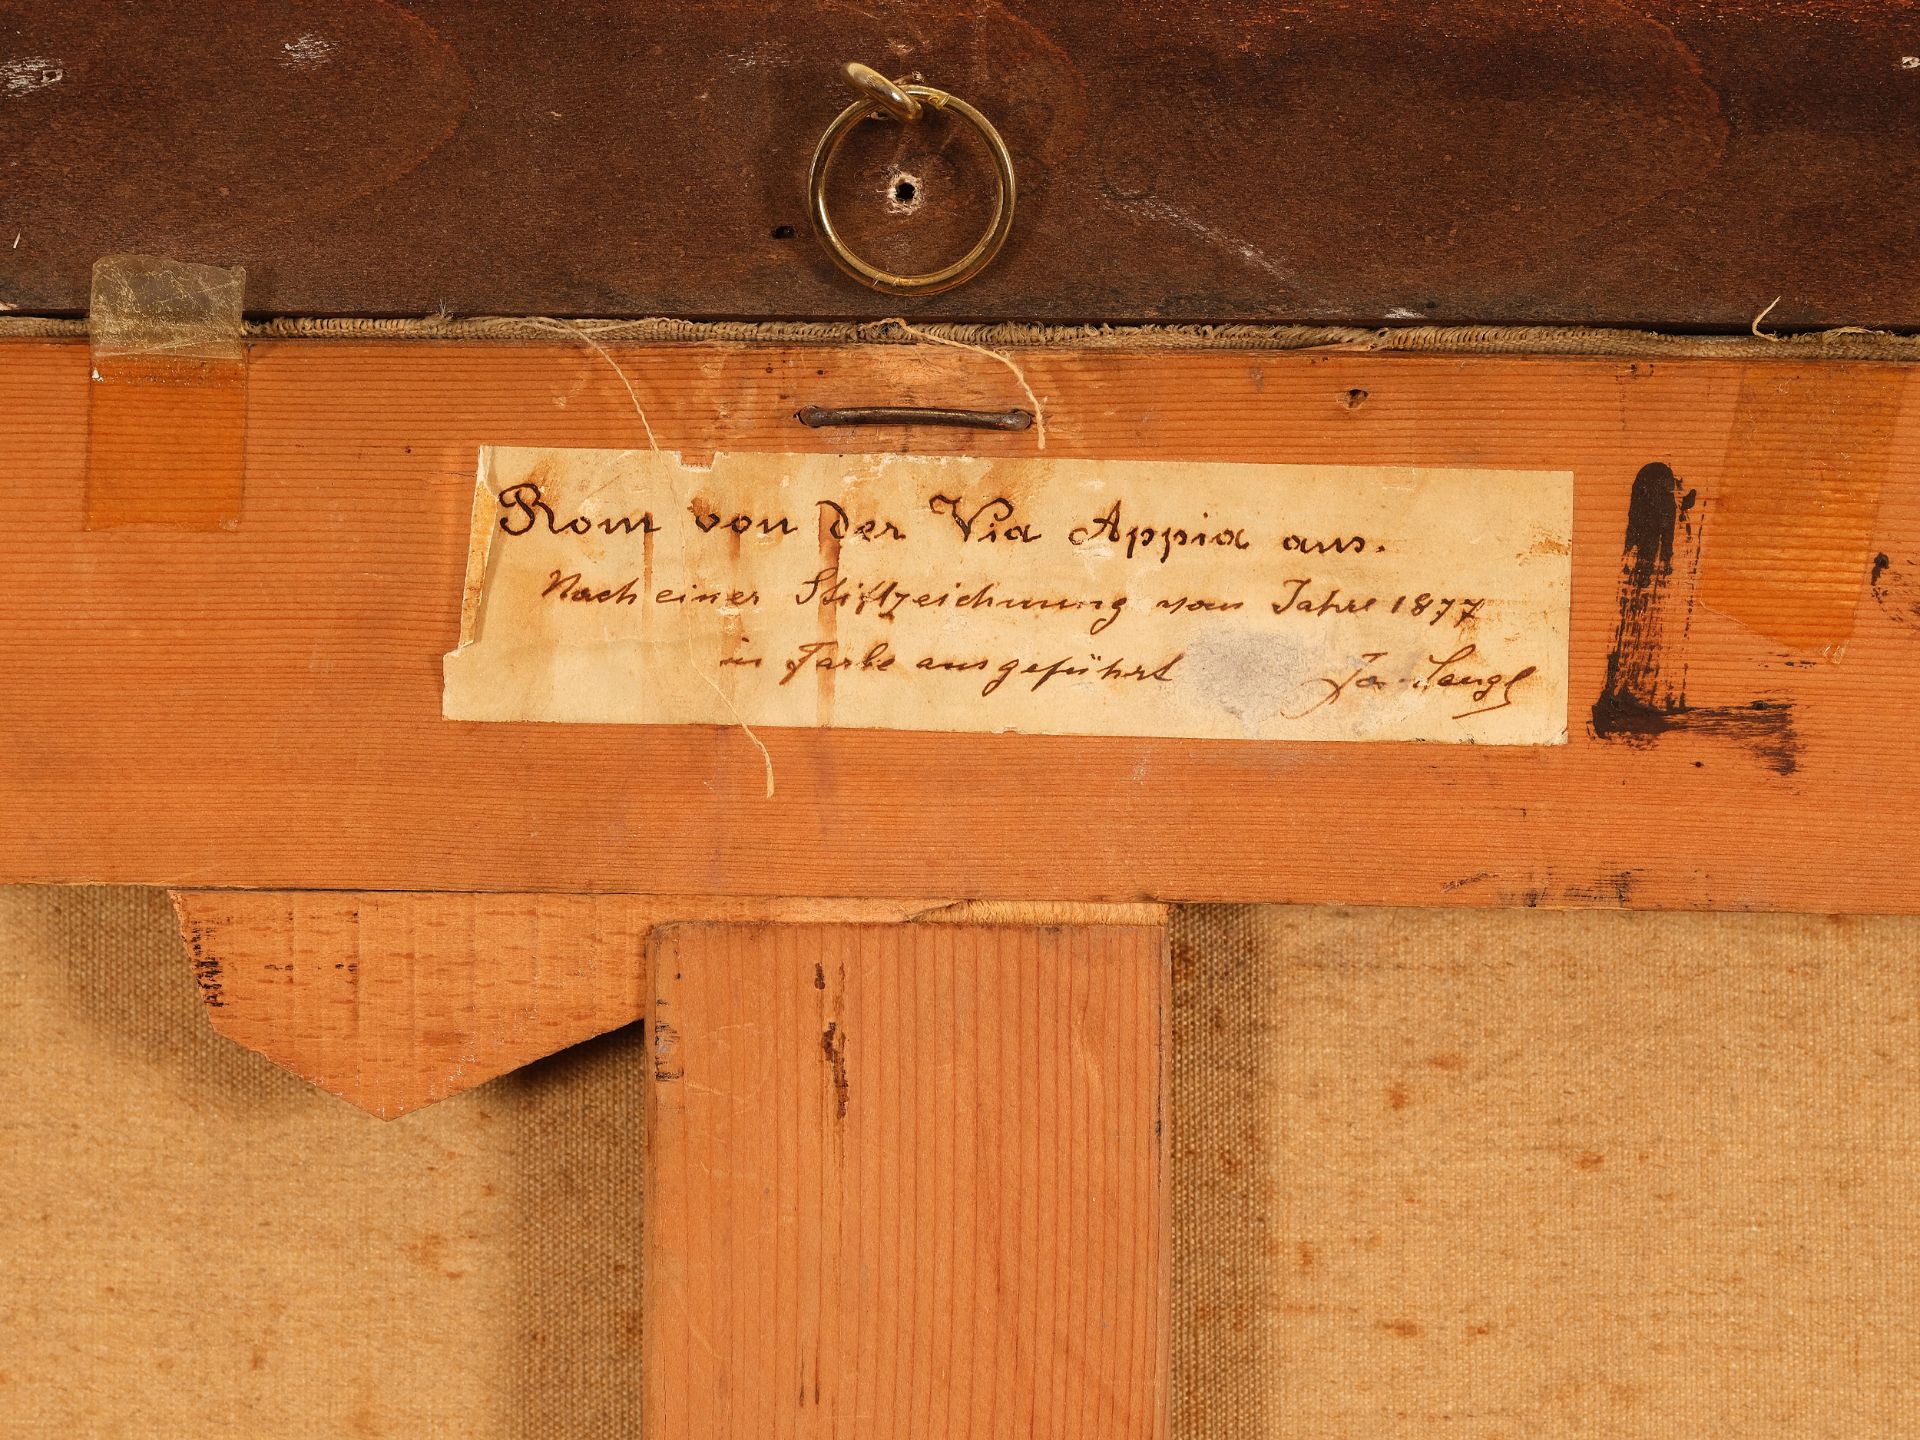 Rom von der Via Appia aus.
Nach einer Stiftzeichnung vom Jahre 1877
in Farbe ausgeführt Jos. Langl
L